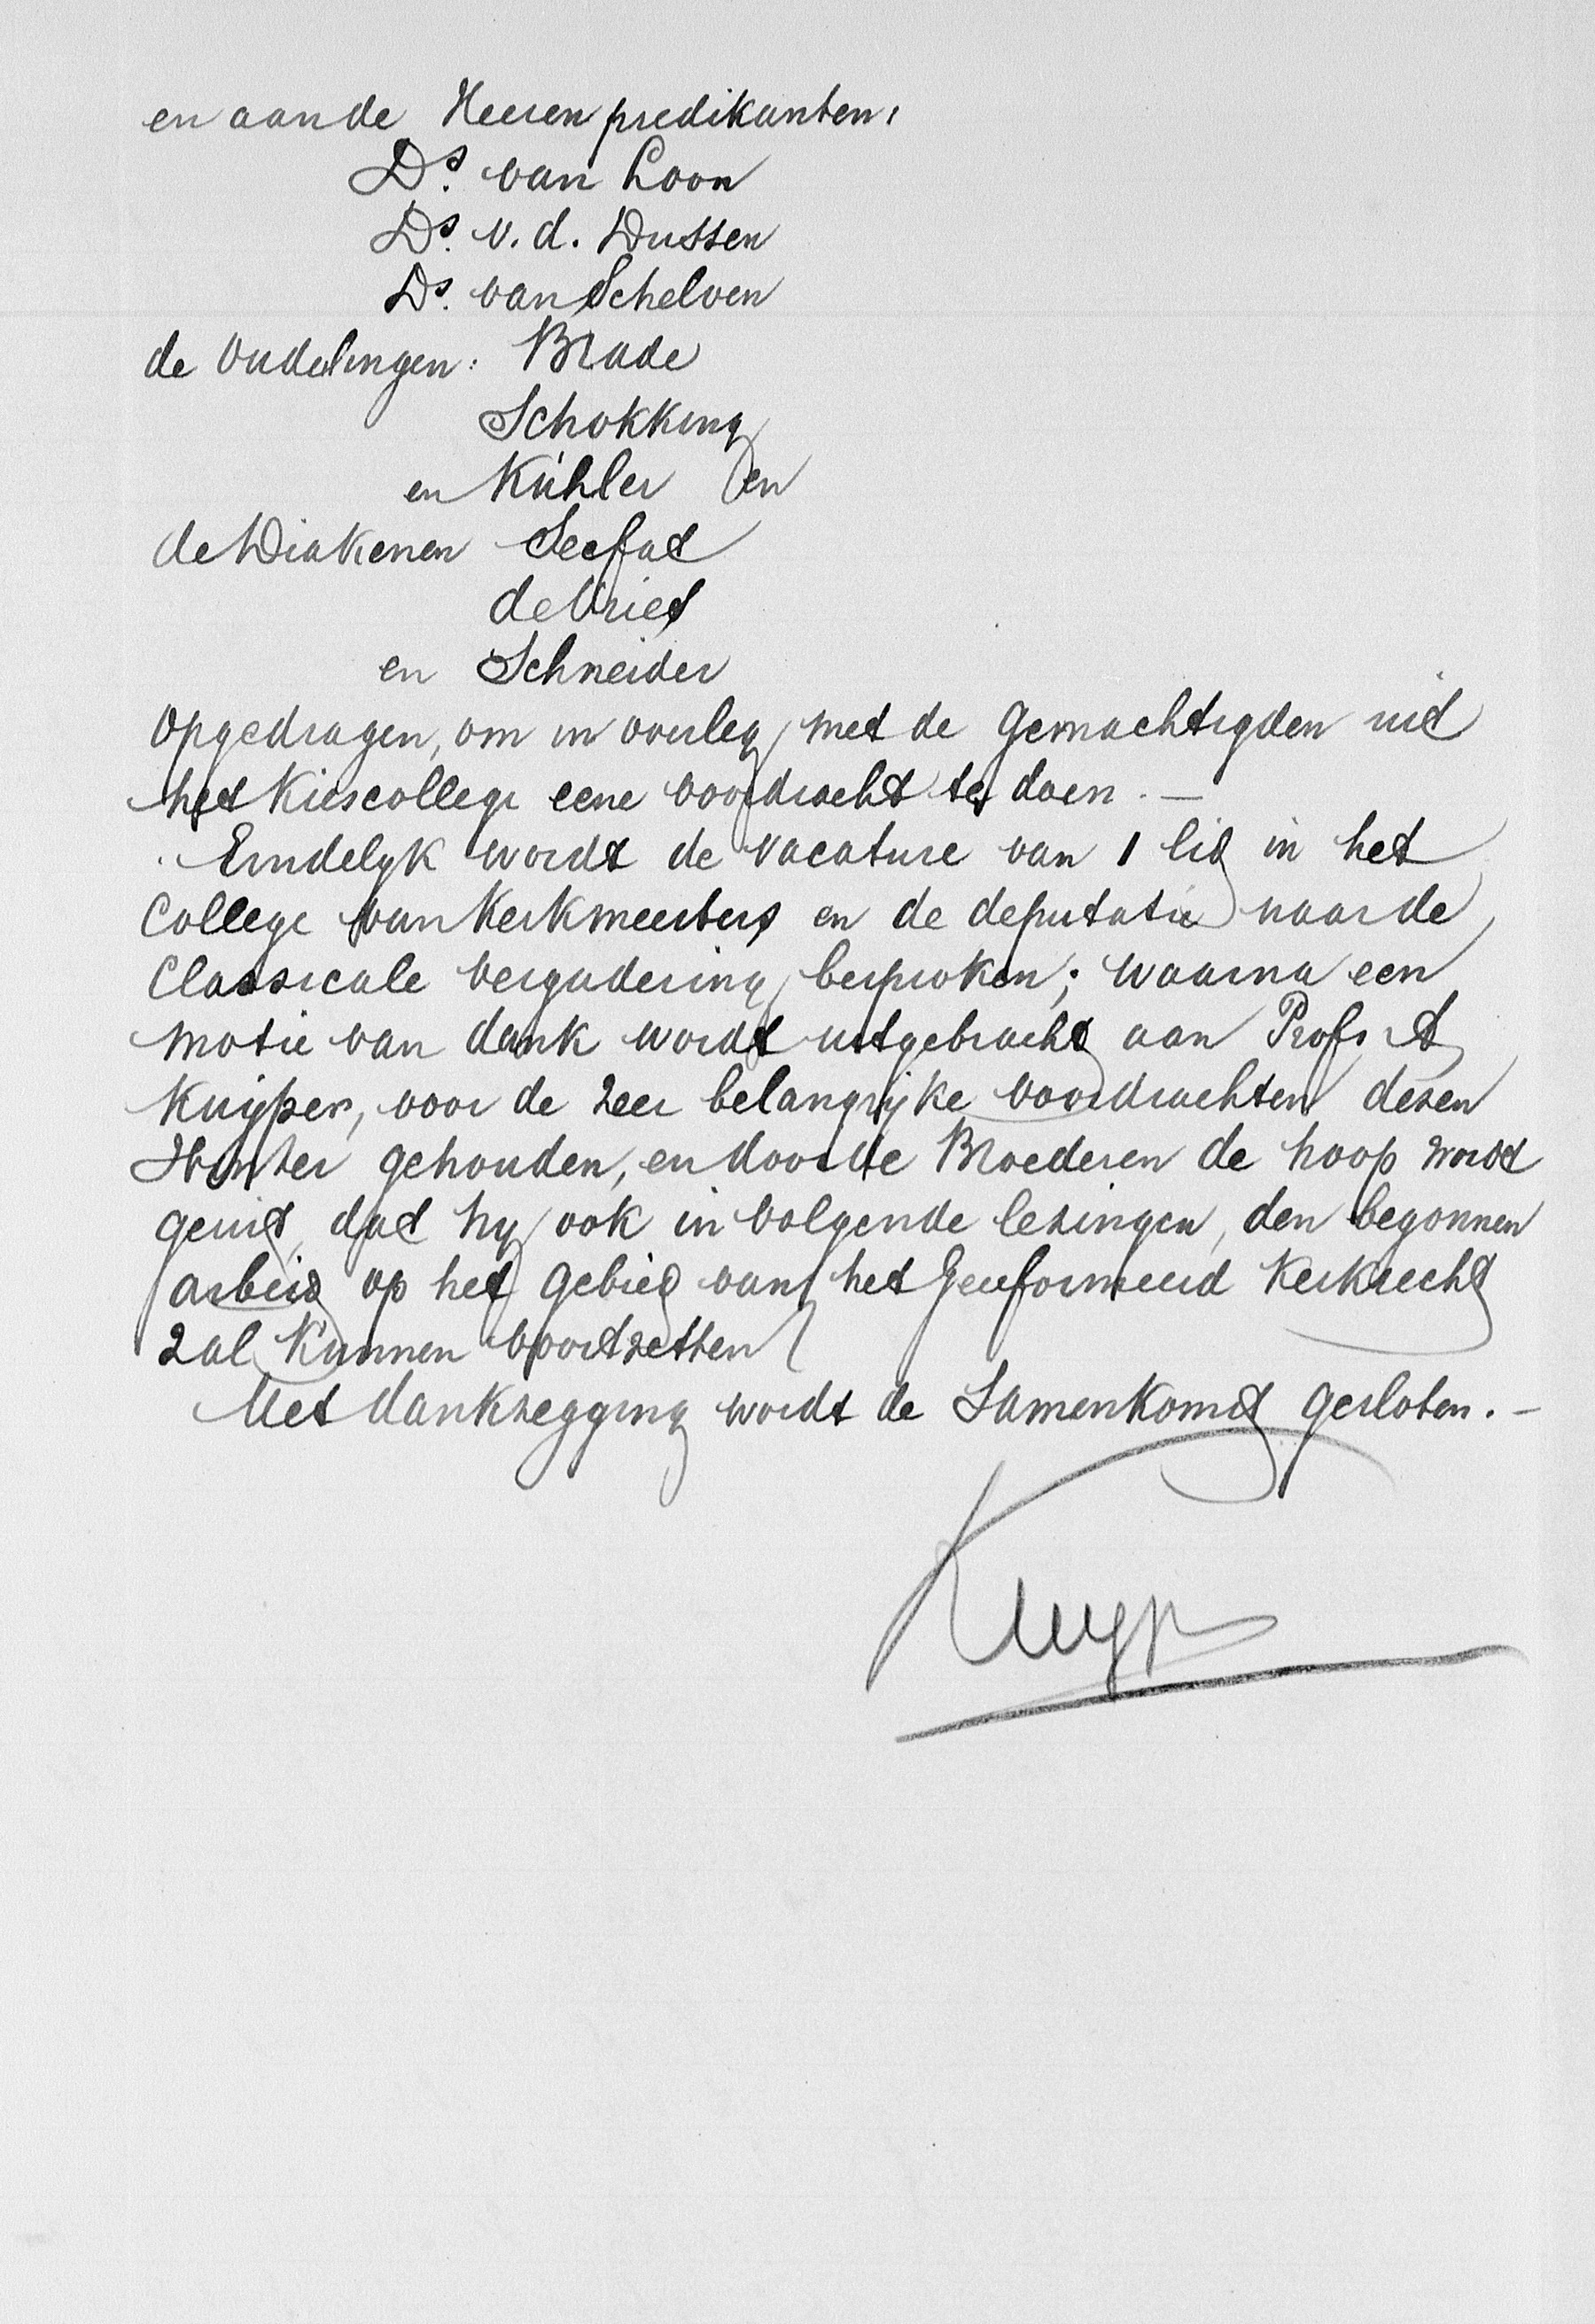 en aan de Heeren predikanten:
Ds. van Loon
Ds. v. d. Dussen
Ds. van Schelven
de Ouderlingen: Brade
Schokking
en Kühler en
de Diakenen Seefat
de Vries
en Schneider
Opgedragen, om in overleg met de Gemachtigden uit
het Kiescollege eene voordracht te doen. —
Eindelyk wordt de vacature van 1 lid in het
College van Kerkmeesters en de deputatie naar de
Classicale vergadering besproken; waarna een
motie van dank wordt uitgebracht aan Profr. A
Kuijper, voor de zeer belangrijke voordrachten dezen
Winter gehouden, en door de Broederen de hoop wordt
geuit, dat hy ook in volgende lezingen, den begonnen
arbeid op het gebied van het Gereformeerd Kerkrecht
zal kunnen voortzetten
Met dankzegging wordt de Samenkomst gesloten. —
Kuyper